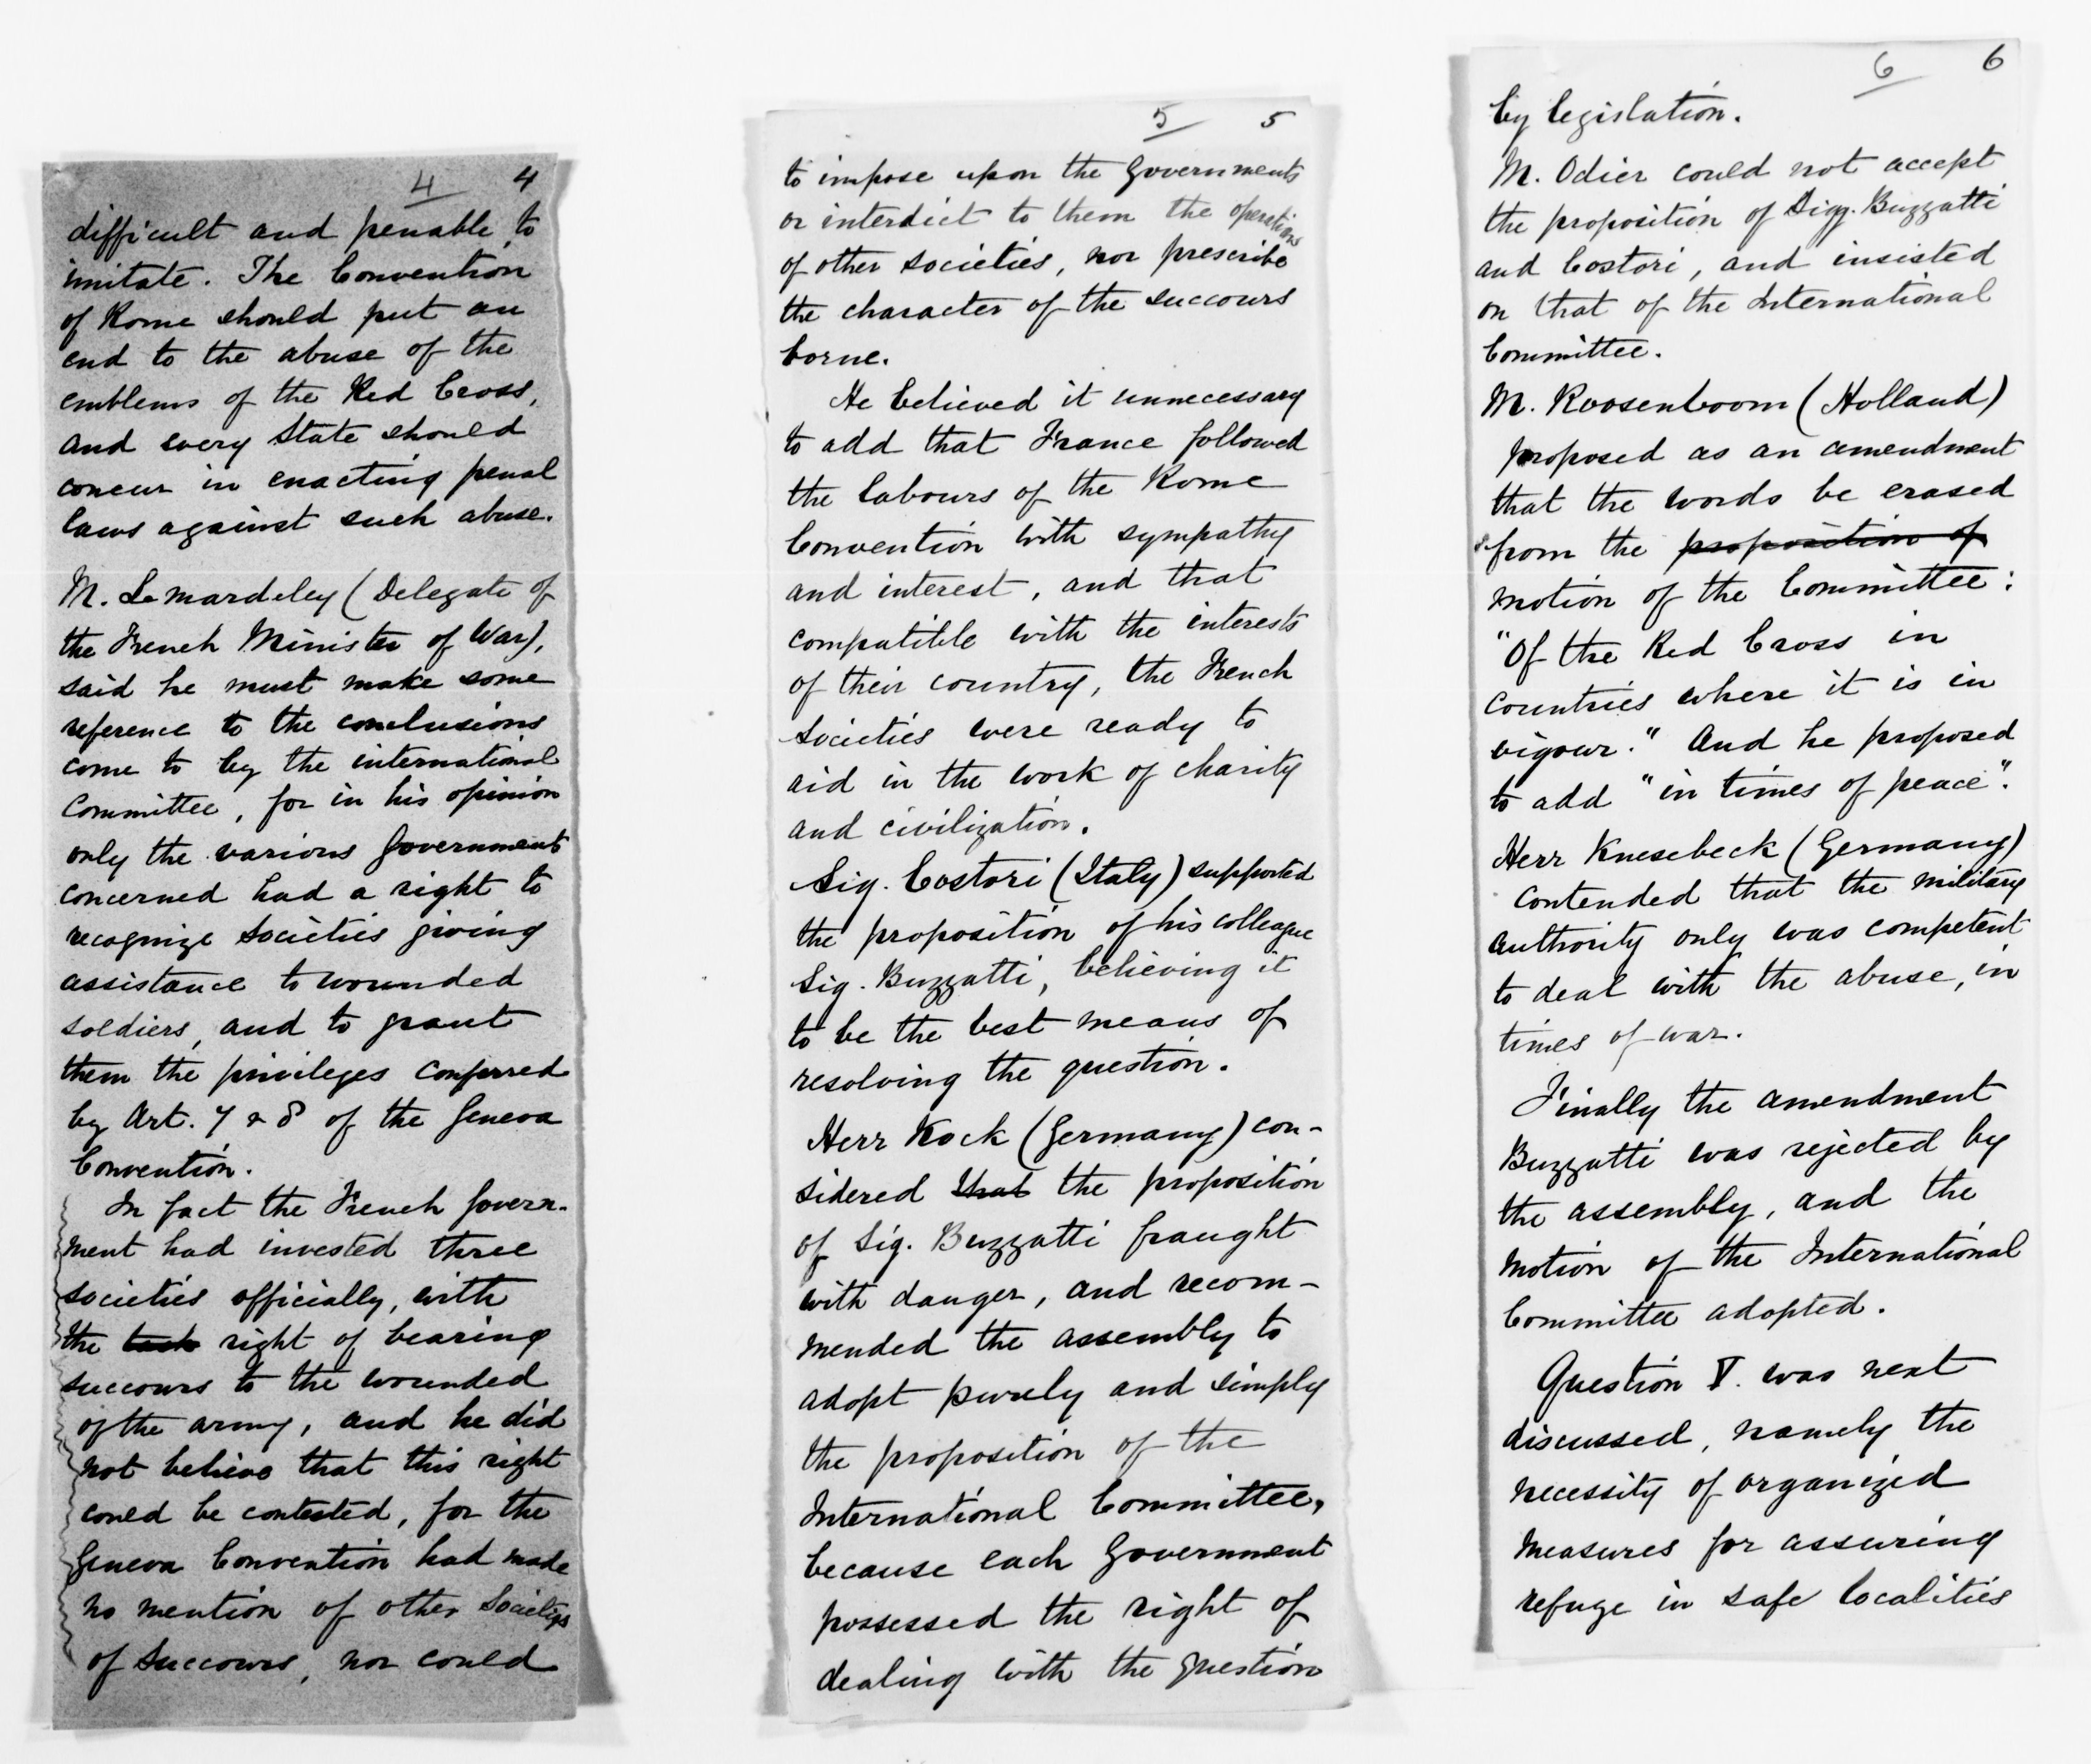 4 4
difficult and penable to
imitate. The Convention
of Rome should put an
end to the abuse of the
emblems of the Red Cross,
and every State should
concur in enacting penal
laws against such abuse.
M. Lemardeley (Delegate of
the French Minister of War),
said he must make some
reference to the conclusions
come to by the international
Committee, for in his opinion
only the various Government
concerned had a right to
recognize Societies giving
assistance to wounded
soldiers, and to grant
them the privileges conferred
by Art. 7 & 8 of the Geneva
Convention.
In fact the French Govern-
ment had invested three
societies officially, with
the task right of bearing
succours to the wounded
of the army, and he did
not believe that this right
could be contested, for the
Geneva Convention had made
no mention of other Societies
of Succours, nor could
5 5
to impose upon the Governments
or interdict to them the operations
of other societies, nor prescribe
the character of the succours
borne.
He believed it unnecessary
to add that France followed
the labours of the Rome
Convention with sympathy
and interest, and that
compatible with the interests
of their country, the French
Societies were ready to
aid in the work of charity
and civilization.
Sig. Costori (Italy) supported
the proposition of his colleague
Sig. Buzzatti, believing it
to be the best means of
resolving the question.
Herr Kock (Germany) con-
sidered that the proposition
of Sig. Buzzatti fraught
with danger, and recom-
mended the assembly to
adopt purely and simply
the proposition of the
International Committee,
because each Government
possessed the right of
dealing with the question
6 6
by legislation.
M. Odier could not accept
the proposition of Sigg. Buzzatti
and Costori, and insisted
on that of the International
Committee.
M. Roosenboom (Holland)
proposed as an amendment
that the words be erased
from the proposition of
motion of the Committee:
"Of the Red Cross in
countries where it is in
vigour." And he proposed
to add "in times of peace".
Herr Knesebeck (Germany)
contended that the military
authority only was competent
to deal with the abuse, in
times of war.
Finally the amendment
Buzzatti was rejected by
the assembly, and the
motion of the International
Committee adopted.
Question V. was next
discussed, namely the
necessity of organized
measures for assuring
refuge in safe localities